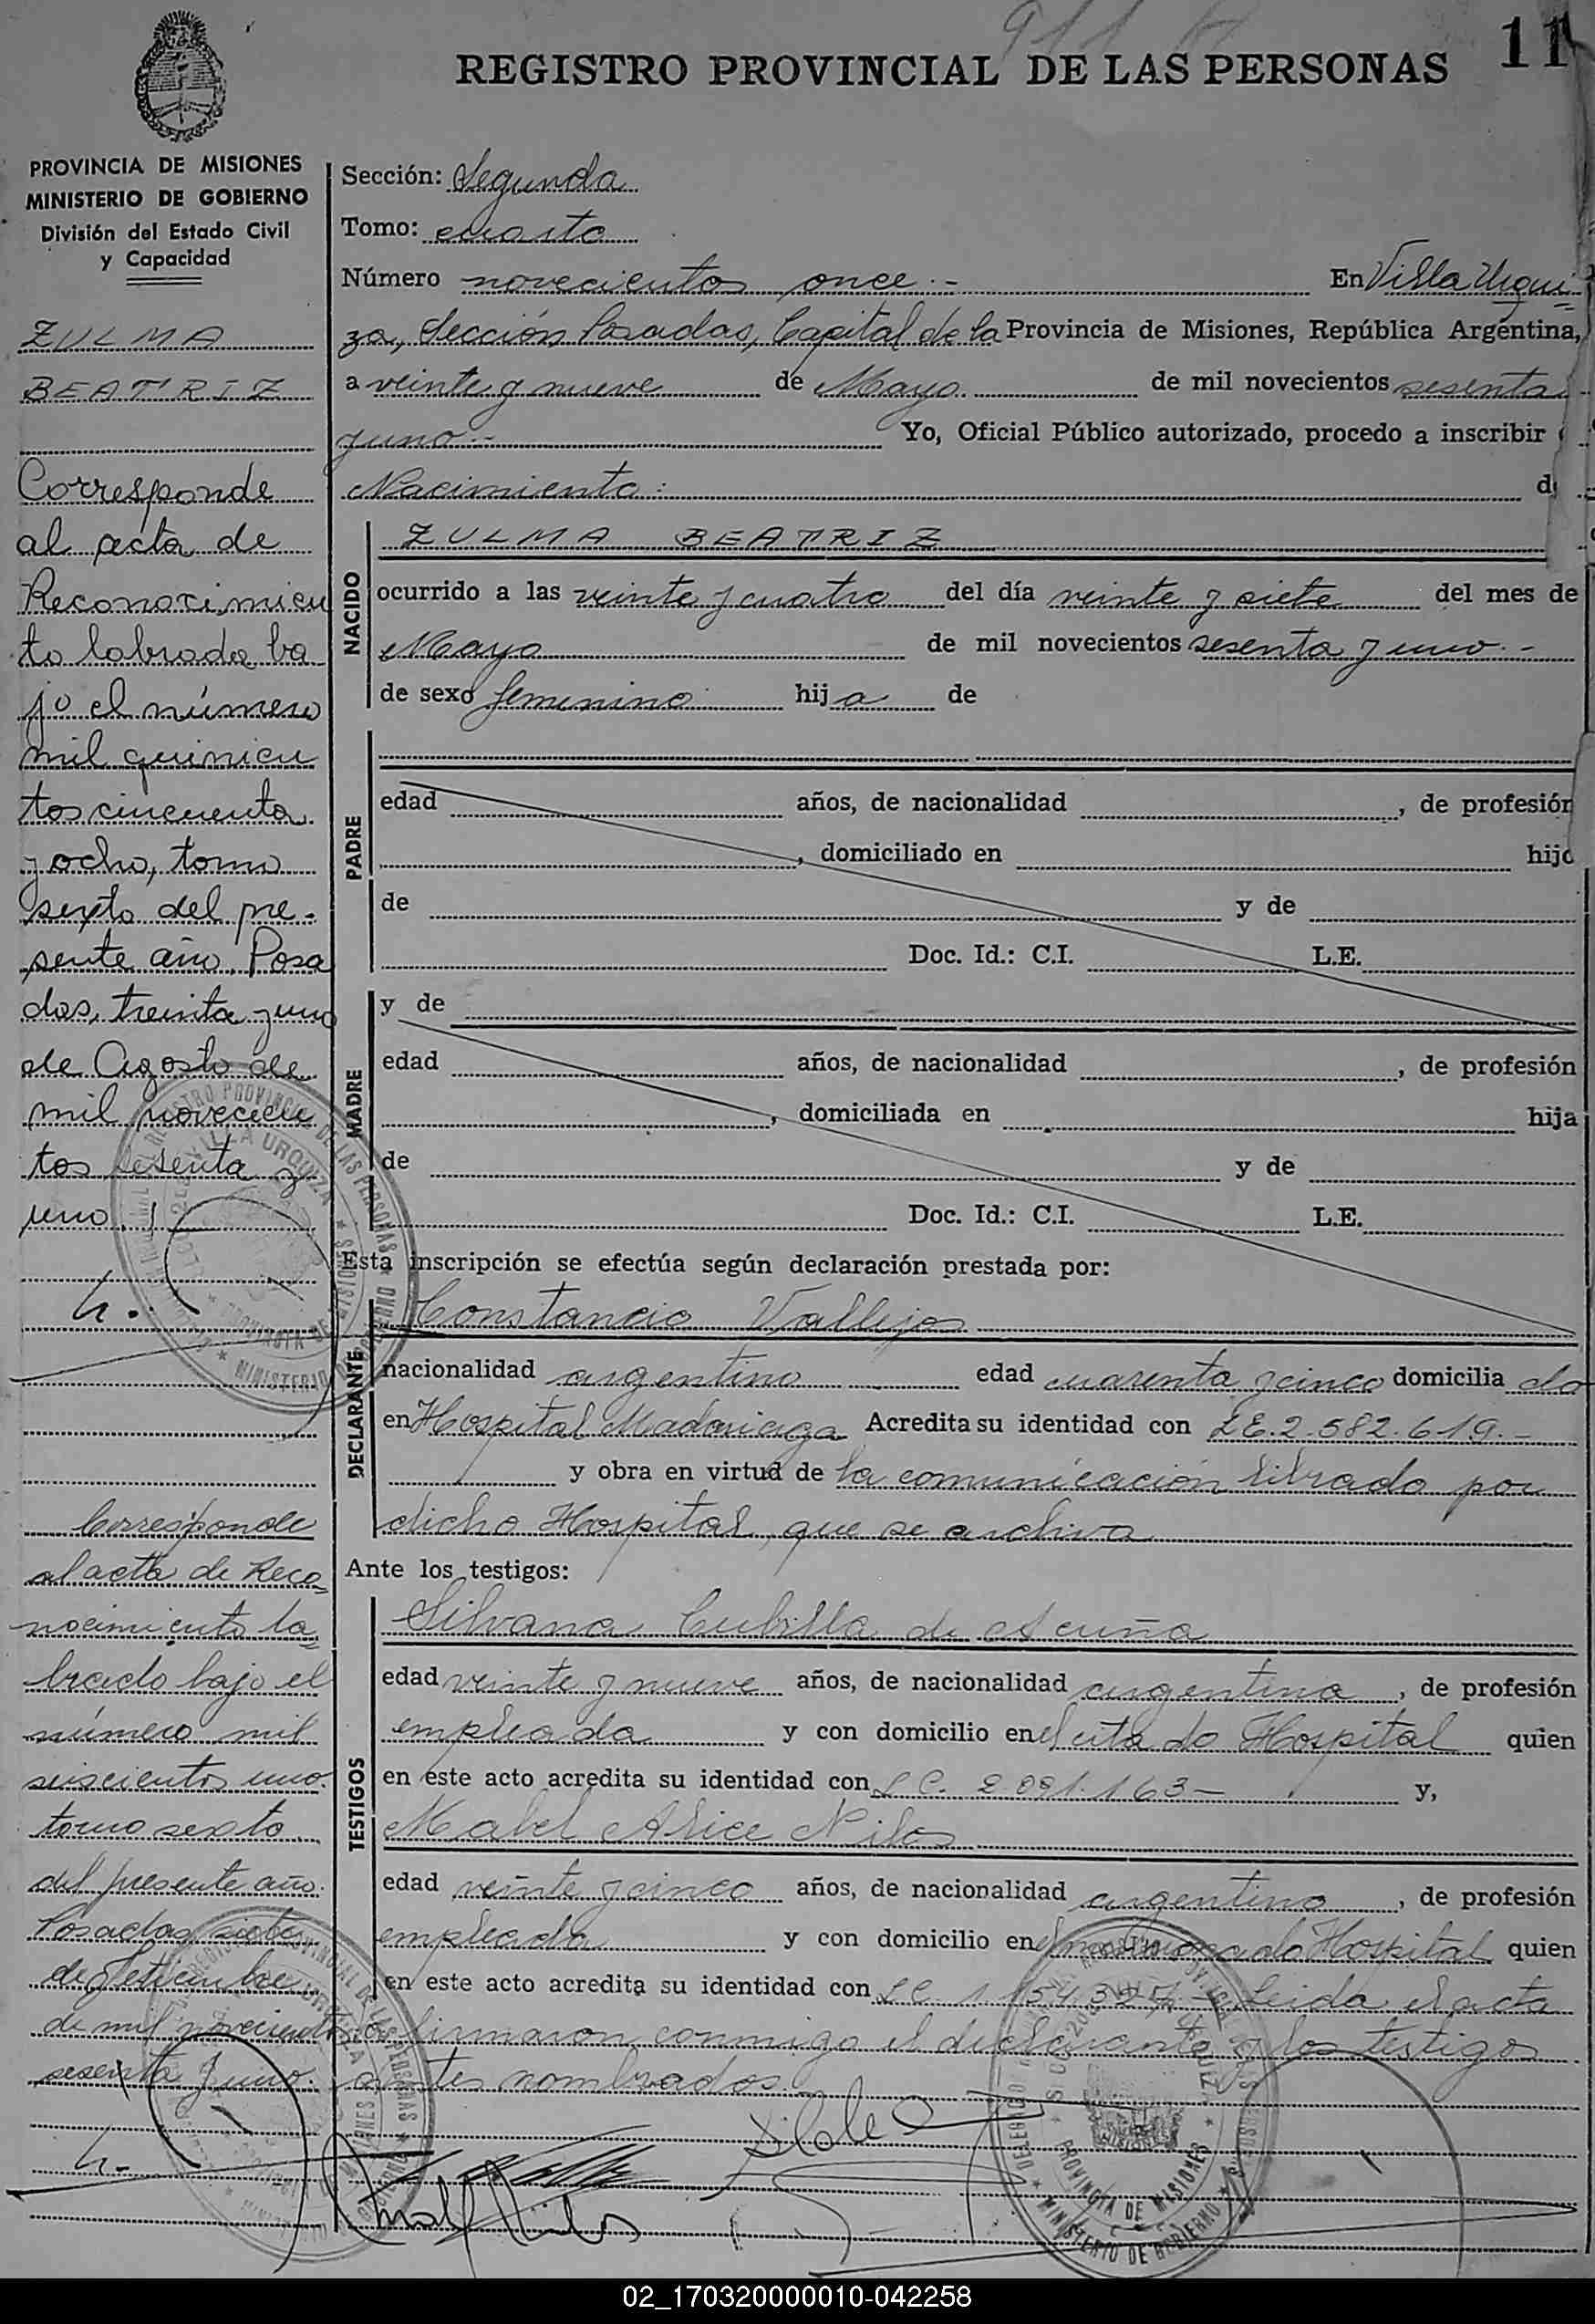 911
11
REGISTRO PROVINCIAL DE LAS PERSONAS
PROVINCIA DE MISIONES
MINISTERIO DE GOBIERNO
División del Estado Civil
y Capacidad
ZULMA
BEATRIZ
Corresponde
al acta de
Reconocimien
to labrada ba
jo el número
mil quinien
tos cincuenta
y ocho, tomo
sexto del pre-
sente año. Posa
das, treinta y uno
de Agosto de
mil novecien
tos sesenta y
uno.
Corresponde
al acta de Reco-
nocimiento la-
brado bajo el
número mil
seiscientos uno.
tomo sexto
del presente año.
Posadas, siete
de Setiembre
de mil novecientos
sesenta y uno.
Sección: Segunda
Tomo: cuarto
Número novecientos once.- En Villa Urqui-
za, Sección Posadas, Capital de la Provincia de Misiones, República Argentina,
a veinte y nueve de Mayo de mil novecientos sesenta
y uno.- Yo, Oficial Público autorizado, procedo a inscribir
Nacimiento: d
NACIDO
ZULMA BEATRIZ
ocurrido a las veinte y cuatro del día veinte y siete del mes de
Mayo de mil novecientos sesenta y uno.-
de sexo femenino hija de
PADRE
edad años, de nacionalidad , de profesión
, domiciliado en hijo
de y de
Doc. Id.: C.I. L.E.
MADRE
y de
edad años, de nacionalidad , de profesión
, domiciliada en hija
de y de
Doc. Id.: C.I. L.E.
Esta inscripción se efectúa según declaración prestada por:
DECLARANTE
Constancio Vallejos
nacionalidad argentino edad cuarenta y cinco domicilia do
en Hospital Madariaga Acredita su identidad con LE.2.582.619.-
y obra en virtud de la comunicación librada por
dicho Hospital, que se archiva
Ante los testigos:
TESTIGOS
Silvana Cubilla de Acuña
edad veinte y nueve años, de nacionalidad argentina, de profesión
empleada y con domicilio en el citado Hospital quien
en este acto acredita su identidad con LC. 2.091.163- y,
Mabel Alice Niles
edad veinte y cinco años, de nacionalidad argentina, de profesión
empleada y con domicilio en el Hospital quien
en este acto acredita su identidad con LC Leida el acta
la firmaron conmigo el declarante y los testigos
antes nombrados.
PROVINCIA DE MISIONES
MINISTERIO DE GOBIERNO
02_170320000010-042258